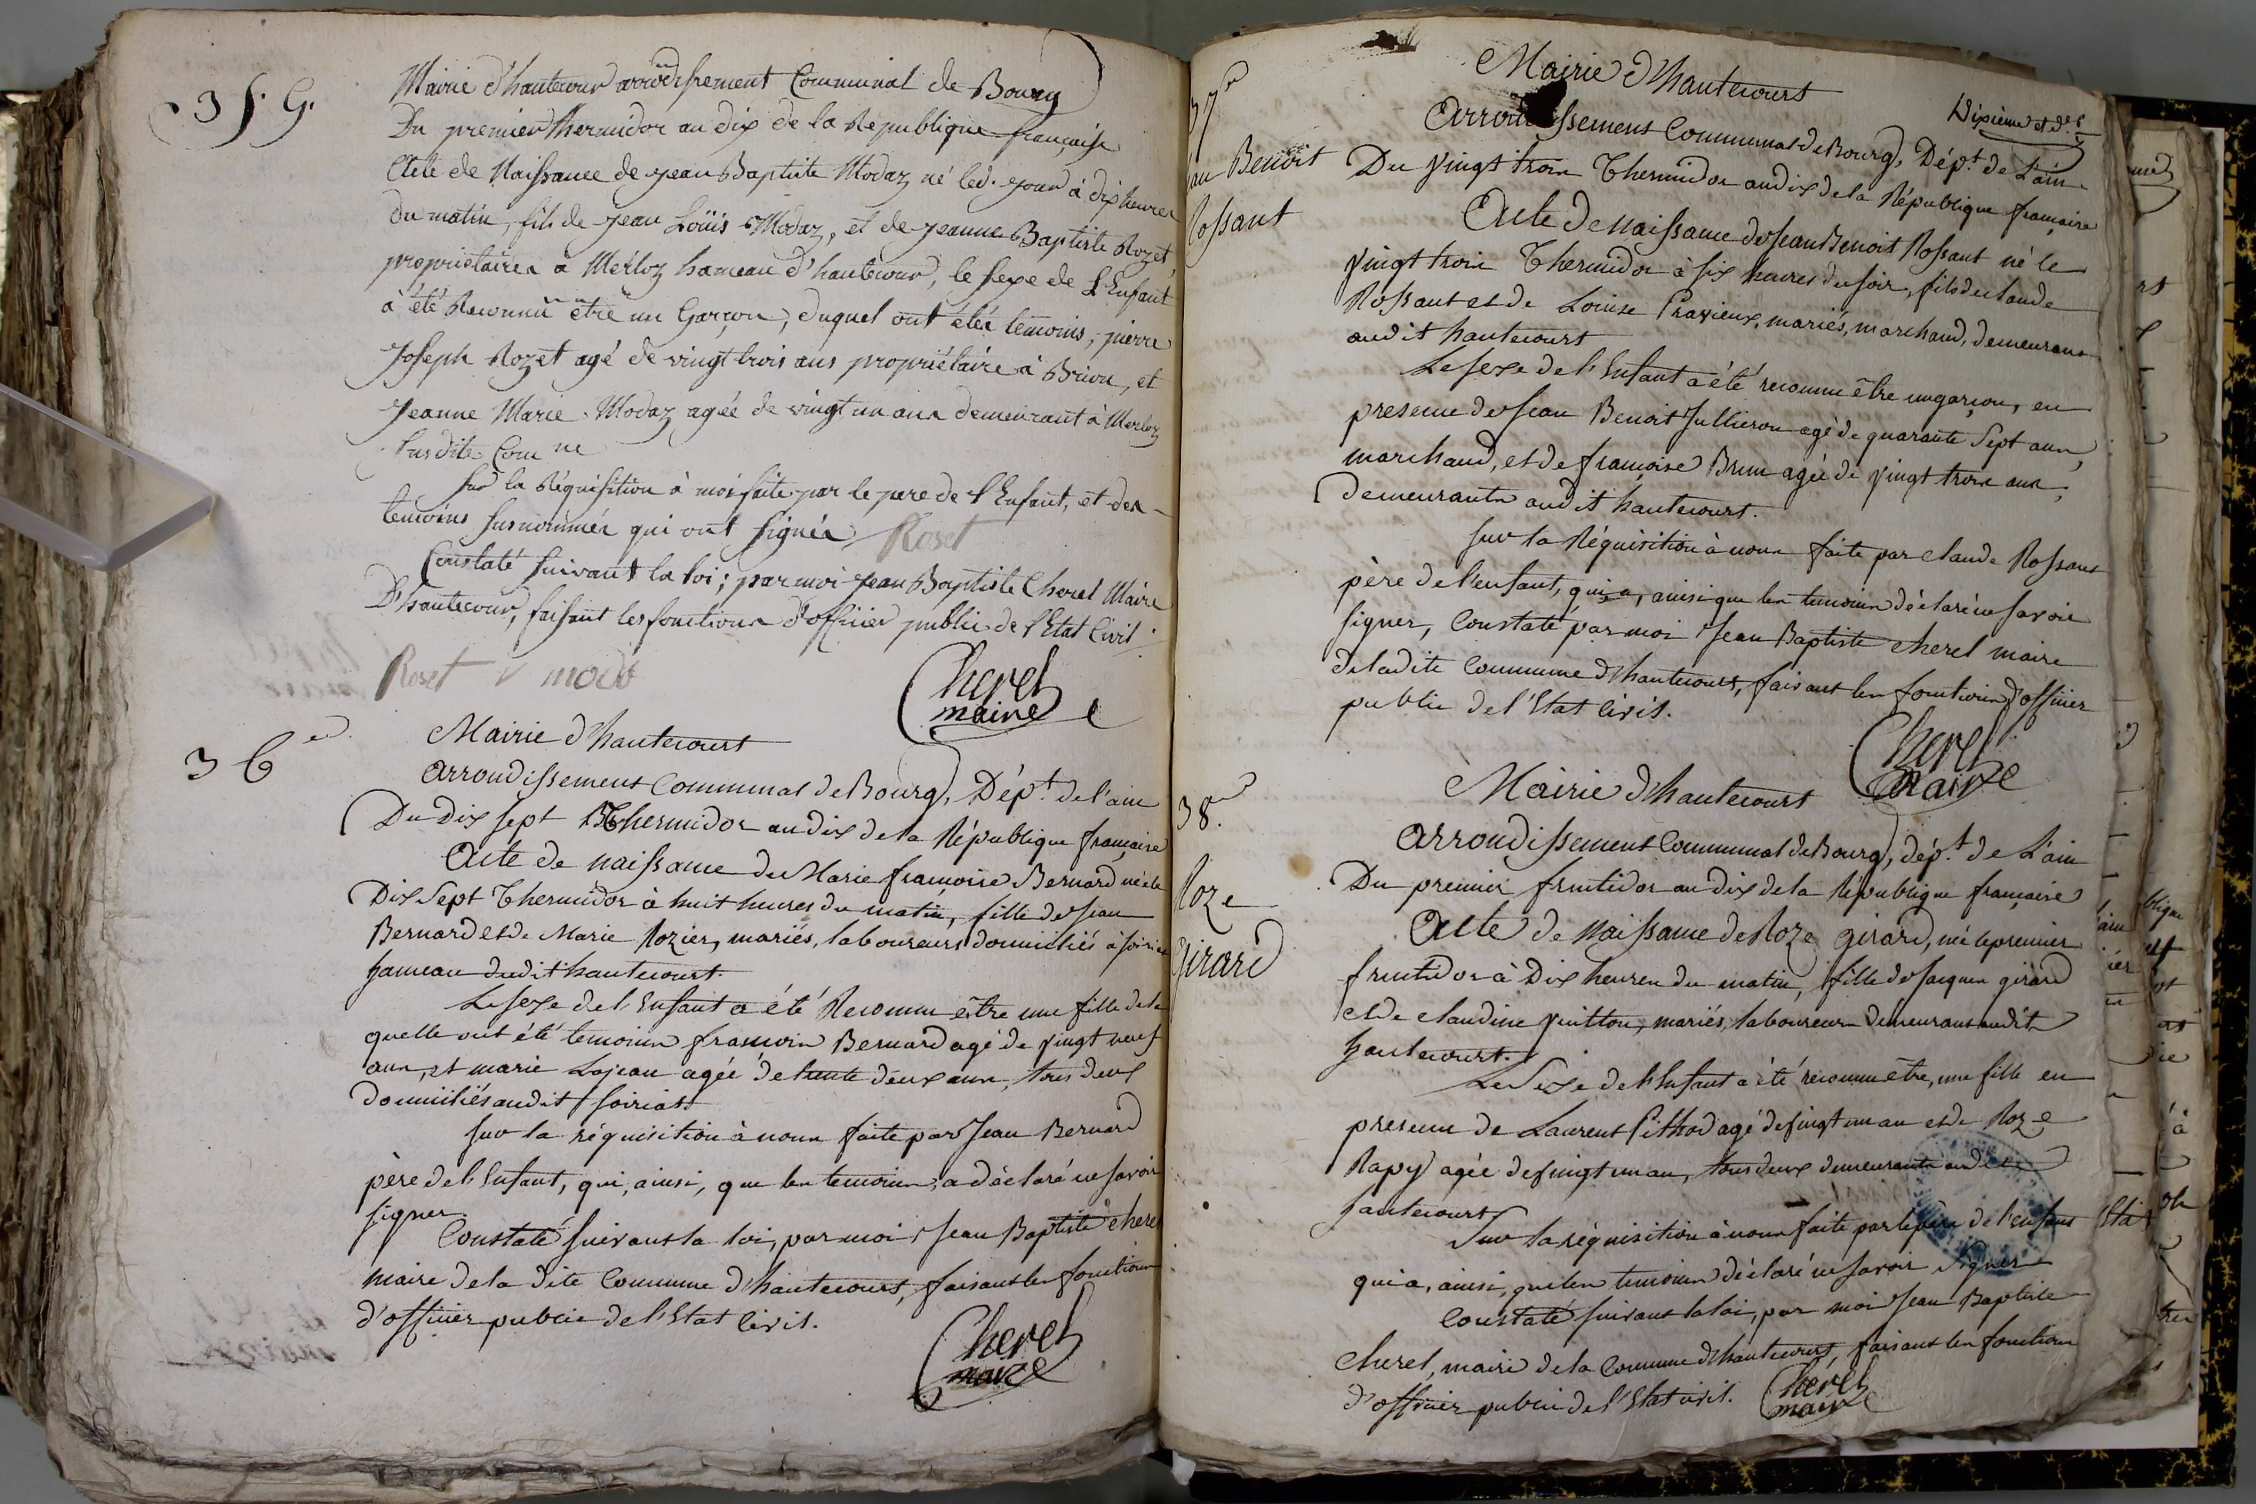 35.
Mairie d'hautecour arrondissement Communal de Bourg
Du premier thermidor an dix de la République française
Acte de Naissance de jean Baptiste Modaz né led. jour à dix heures
du matin, fils de jean Loüis Modaz, et de jeanne Baptiste Rozet,
propriétaires à Merloz hameau d'hautecour, le sexe de L'Enfant
à été Reconnu être un Garçon, duquel ont étés temoins, pierre
Joseph Rozet agé de vingt trois ans propriétaire à Brion, et
Jeanne Marie Modaz agée de vingt un ans demeurant à Merloz
susdite Com ne
sur la Réquisition à moi faite par le pere de l'Enfant, et des
temoins susnommés qui ont signés Roset
Constaté suivant la loi; par moi jean Baptiste Cherel Maire
D'hautecour, faisant les fonctions d'officier public de l'Etat Civil
Roset modo
Cherel
maire
36
Mairie d'hautecourt
arrondissement Communal de Bourg, Dép.t de l'ain
Du dix sept Thermidor an dix de la République française
Acte de naissance de Marie françoise Bernard née le
Dix sept Thermidor à huit heures du matin, fille de Jean
Bernard et de Marie Rozier, mariés, laboureurs domiciliés à soiriat
hameau dudit hautecourt.
Le sexe de l'Enfant a été Reconnu être une fille de la
quelle ont été temoins françois Bernard agé de vingt neuf
ans, et marie Lojean agée de trente deux ans, tous deux
domiciliés audit soiriat
sur la réquisition à nous faite par Jean Bernard
père de l'Enfant, qui, ainsi, que les temoins, a déclaré ne savoir
signer.
Constaté suivant la loi, par moi Jean Baptiste cherel
maire de la dite Commune d'hautecourt, faisant les fonctions
d'officier public de l'Etat Civil.
Cherel
maire
Dixième et d.r
37
Benoit
Rossant
Mairie d'hautecourt
Arrondissement Communal de Bourg, Dép.t de L'ain
Du vingt trois Thermidor an dix de la République française
Acte de naissance de Jean Benoit Rossant né le
vingt trois Thermidor à six heures du soir, fils de Claude
Rossant et de Louise Pravieux, mariés, marchand, demeurant
audit hautecourt
Le sexe de l'Enfant a été reconnu être un garçon, en
presence de Jean Benoit Jullieron agé de quarante sept ans,
marchand, et de françoise Brun agée de vingt trois ans,
demeurants audit hautecourt.
sur la Réquisition à nous faite par claude Rossant
père de l'enfant, qui a, ainsi que les temoins déclaré ne savoir
signer, Constaté par moi Jean Baptiste cherel maire
de ladite Commune d'hautecourt, faisant les fonctions d'officier
public de l'Etat Civil.
Cherel
maire
38.
Roze
Girard
Mairie d'hautecourt
arrondissement Communal de Bourg, dép.t de L'ain
Du premier fructidor an dix de la République française
Acte de Naissance de Roze girard, née le premier
fructidor à Dix heures du matin, fille de Jacques girard
et de claudine vuitton, mariés, laboureurs demeurant audit
hautecourt.
Le Sexe de l'Enfant a été reconnu être, une fille en
presence de Laurent Pithod agé de vingt un an et de Roze
Rapy agée de vingt un an, tous deux demeurants audit
hautecourt
Sur la réquisition à nous faite par le père de l'enfant
qui a, ainsi, que les temoins déclaré ne savoir signer
Constaté suivant la loi, par moi Jean Baptiste
cherel, maire de la Commune d'hautecourt, faisant les fonctions
d'officier public de l'Etat civil.
Cherel
maire